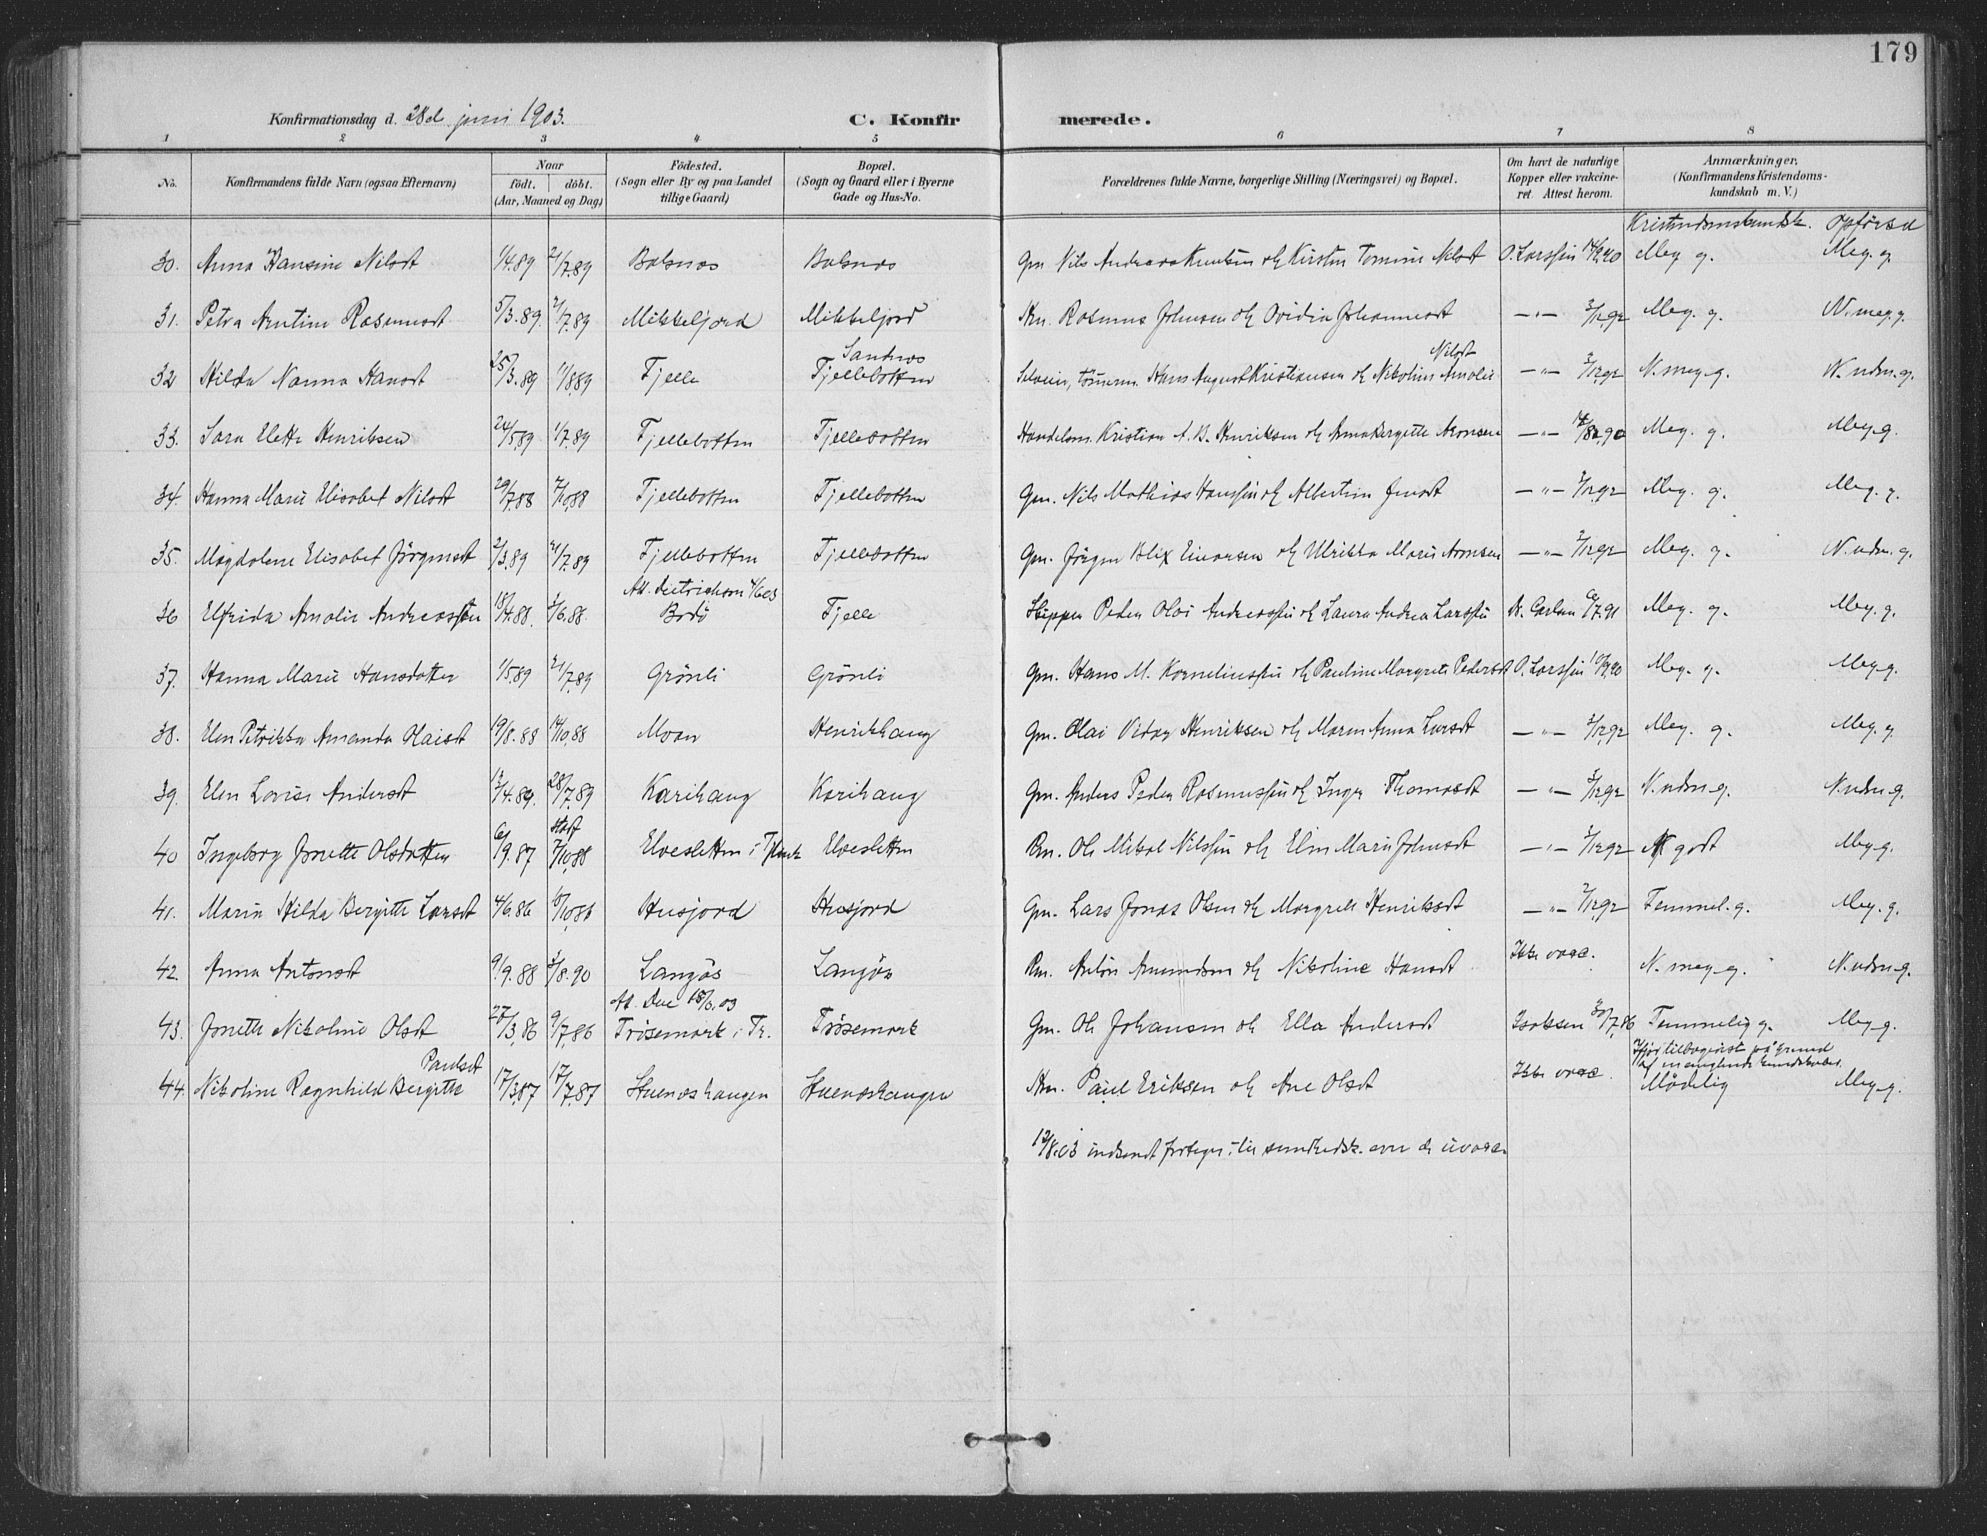 179
Konfirmationsdag d. 28de juni 1903. C. Konfirmerede.
1 2 3 4 5 6 7 8
No. Konfirmandens fulde Navn (ogsaa Efternavn) Naar födt. döbt. (Aar, Maaned og Dag) Födested. (Sogn eller By og paa Landet tillige Gaard) Bopæl. (Sogn og Gaard eller i Byerne Gade og Hus-No. Forældrenes fulde Navne, borgerlige Stilling (Næringsvei) og Bopæl. Om havt de naturlige Kopper eller vakcineret. Attest herom. Anmærkninger. (Konfirmandens Kristendomskundskab m. V.)
Kristendomskundsk. Opførsel
30. Anna Hansine Nilsdt 1/4.89 21/7.89 Balsnes Balsnes Gm Nils Andreas Knutsen og Kirstin Tomine Nilsdt O. Larssen Meg g. Meg. g.
31. Petra Arntine Rasmusdt 5/3.89. 21/7.89 Mikkeljord Mikkeljord Rasmus Johnsen og Ovidia Johannesdt —"— 2/12.92 Meg. g. N. meg. g.
Sandnes Nilsdt
32 Hilda Nanna Hansdt 25/3.89 11/8.89 Fjelle Fjellebotten Selveier, tømmerm. Hans August Kristiansen og Nikoline Amalie —"— 2/12.92 N. meg-g. N. udm.-g.
33. Sara Elette Henriksen 24/5.89 1/7.89 Fjellebotten Fjellebotten Handelsm. Kristian A. B. Henriksen og Anna Bergitte Aronsen —"— Meg. g. Meg-g.
34. Hanna Marie Elisabet Nilsdt 29/7.88 7/10.88 Fjellebotten Fjellebotten Gm. Nils Mathias Hanssen og Albertine Jensdt —"— 2/12.92 Meg. g. Meg. g.
35. Magdalene Elisabet Jörgensdt 2/3.89 21/7.89 Fjellebotten Fjellebotten Gm. Jörgen Blix Einarsen og Ulrikka Marie Aronsen —"— 2/12.92 Meg. g. N. udm. g.
Att. Dietrichson 4/6 03
36 Elfrida Amalie Andreassen 18/4.88. 3/6.88. Bodö Fjelle Skipper Peder Olai Andreassen og Laura Andrea Larssen 6/7.91 Meg. g. Meg. g.
37. Hanna Marie Hansdatter 1/5.89 21/7.89 Grönli Grönli Gm. Hans M. Korneliussen og Pauline Margrete Pedersdt O. Larssen Meg. g. Meg-g.
38. Elen Petrikka Amanda Olaisdt 19/8.88 14/10.88 Moan Henrikhaug Gm. Olai Vidar Henriksen og Maren Anna Larsdt —"— 2/12.92 Meg. g. Meg. g.
39. Elen Lovise Andersdt 13/4.89. 28/7.89 Karihaug Karihaug Gm. Anders Peder Rasmussen og Inger Thomasdt —"— 2/12.92 N. udm-g. N. udm-g.
stadf
40 Ingeborg Jonette Olsdatter 6/9.87 7/10.88 Elvesletten i Elvesletten Ole Mikal Nilssen og Elen Marie Johnsdt —"— 2/12.92 godt Meg-g.
41. Maria Hilda Bergitte Larsdt 4/6.86 10/10.86 Husjord Husjord Gm. Lars Jonas Olsen og Margrete Henriksdt —"— 2/12.92 Temmel. g. Meg. g.
42. Anna Antonsdt 9/9.88 3/8.90 Langøs Langøs Anton Amundsen og Nikoline Hansdt Ikke vacc. N. meg-g. N. udm-g.
Att. Due 15/6.03
43. Jonette Nikoline Olsdt 27/3.86 9/7.86 Trösemark i Tr. Trösemark Gm. Ole Johansen og Ella Andersdt Isaksen 30/7.86 Temmelig g. Meg-g.
Paulsdt Ifjor tilbagevist på grund af manglende kundskaber.
44. Nikoline Ragnhild Bergitte 17/3.87 17/7.87 Stuenæshaugen Stuenæshaugen Paul Eriksen og Ane Olsdt Ikke vacc. Mådelig Meg-g.
12/8.03 indsendt fortegn. til sundhedsk. over de uvacc.